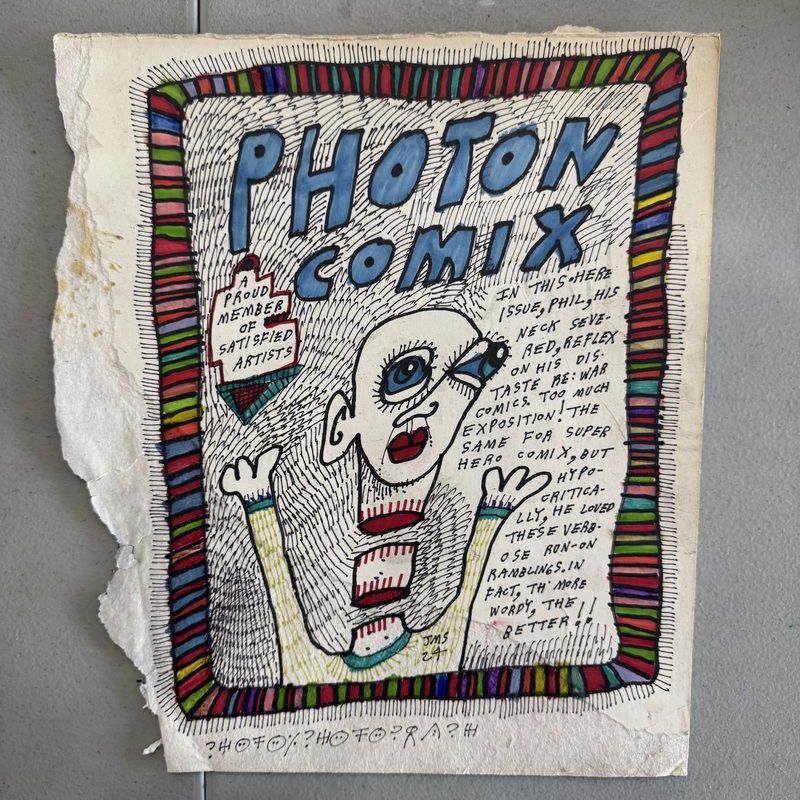 PHOTON
COMIX
A
PROUD
MEMBER
OF
SATISFIED
ARTISTS
IN THIS-HERE
ISSUE, PHIL, HIS
NECK SEVE-
RED, REFLEX
ON HIS DIS-
TASTE RE: WAR
COMICS. TOO MUCH
EXPOSITION! THE
SAME FOR SUPER
HERO COMIX, BUT
HYPO-
CRITICA-
LLY, HE LOVED
THESE VERB-
OSE RUN-ON
RAMBLINGS. IN
FACT, TH' MORE
WORDY, THE
BETTER!!
JMS
24